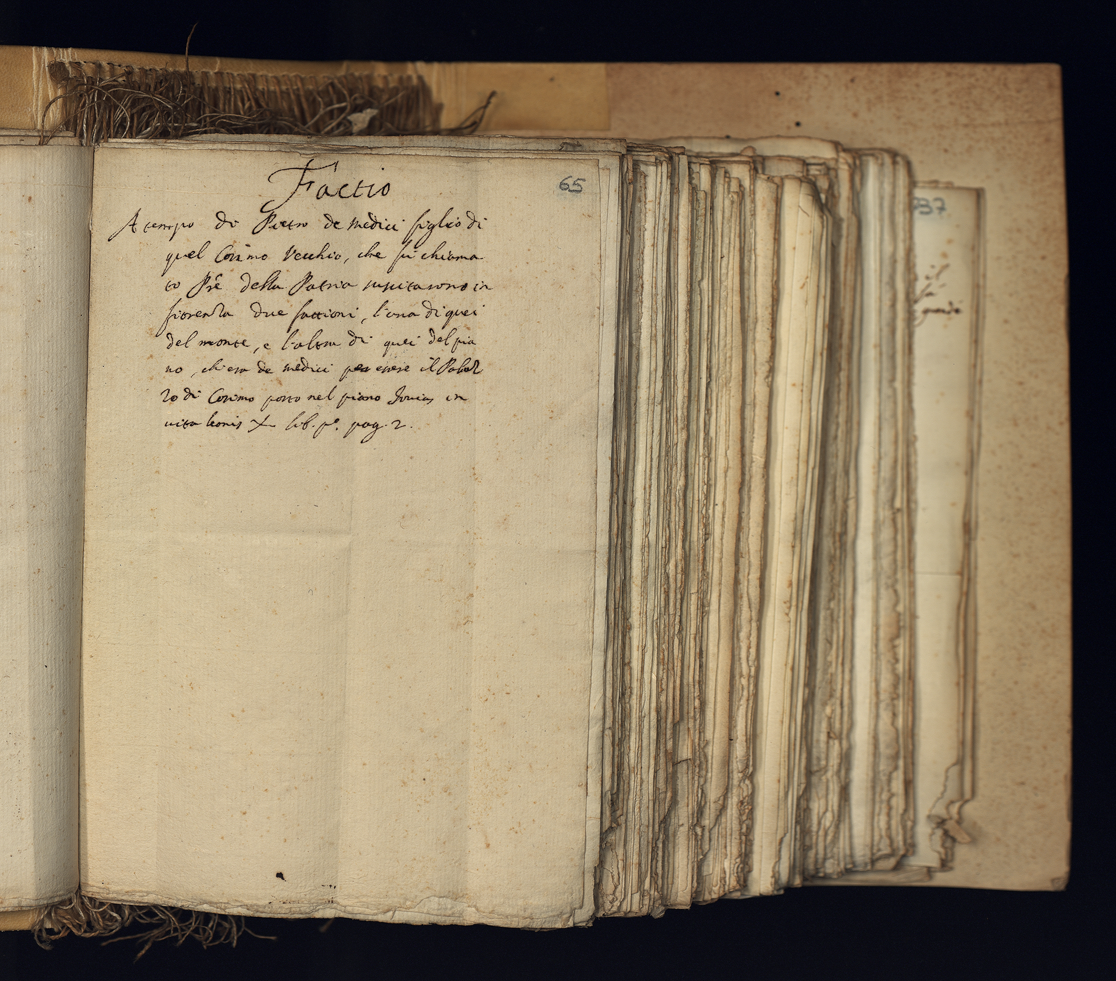 Factio
65
A tempo di Pietro de Medici figlio di
quel Cosimo Vecchio, che fu chiama
to Pre della Patria suscitarono in
fiorenza due fattioni, l'una di quei
del monte, e l'altra di quei del pia
no, chi era de Medici per essere il Palaz
zo di Cosimo posto nel piano Jovius in
vita Leonis X lib. po. pag. 2.
37
il
grande